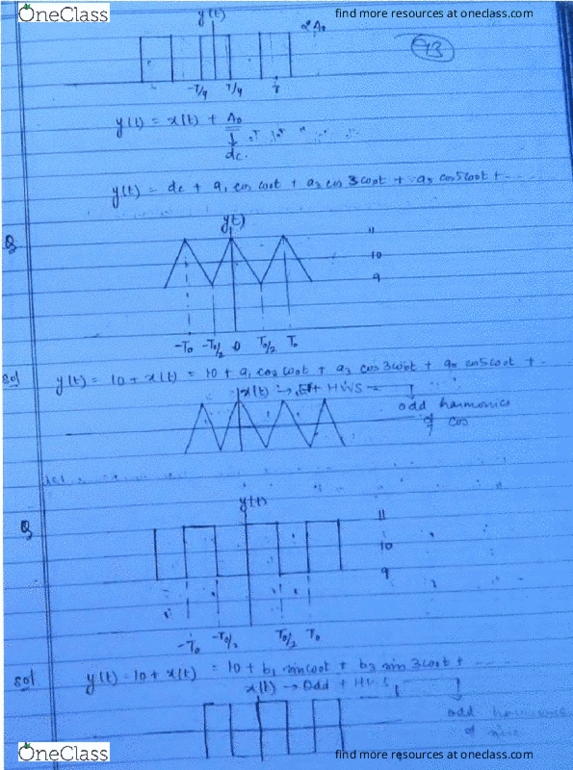 OneClass find more resources at oneclass.com
y(t) 2A₀
93
-T/4 T/4 T
y(t) = x(t) + A₀
dc.
y(t) = dc + a₁ cos ω₀t + a₃ cos 3ω₀t + a₅ cos 5ω₀t + ---
Q y(t)
11
10
9
-T₀ -T₀/2 0 T₀/2 T₀
sol y(t) = 10 + x(t) = 10 + a₁ cos ω₀t + a₃ cos 3ω₀t + a₅ cos 5ω₀t + -
x(t) → E + HWS
odd harmonics
of cos
Q y(t)
11
10
9
-T₀ -T₀/2 T₀/2 T₀
sol y(t) = 10 + x(t) = 10 + b₁ sin ω₀t + b₃ sin 3ω₀t + ---
x(t) → Odd + HWS
odd harmonics
of sine
OneClass find more resources at oneclass.com